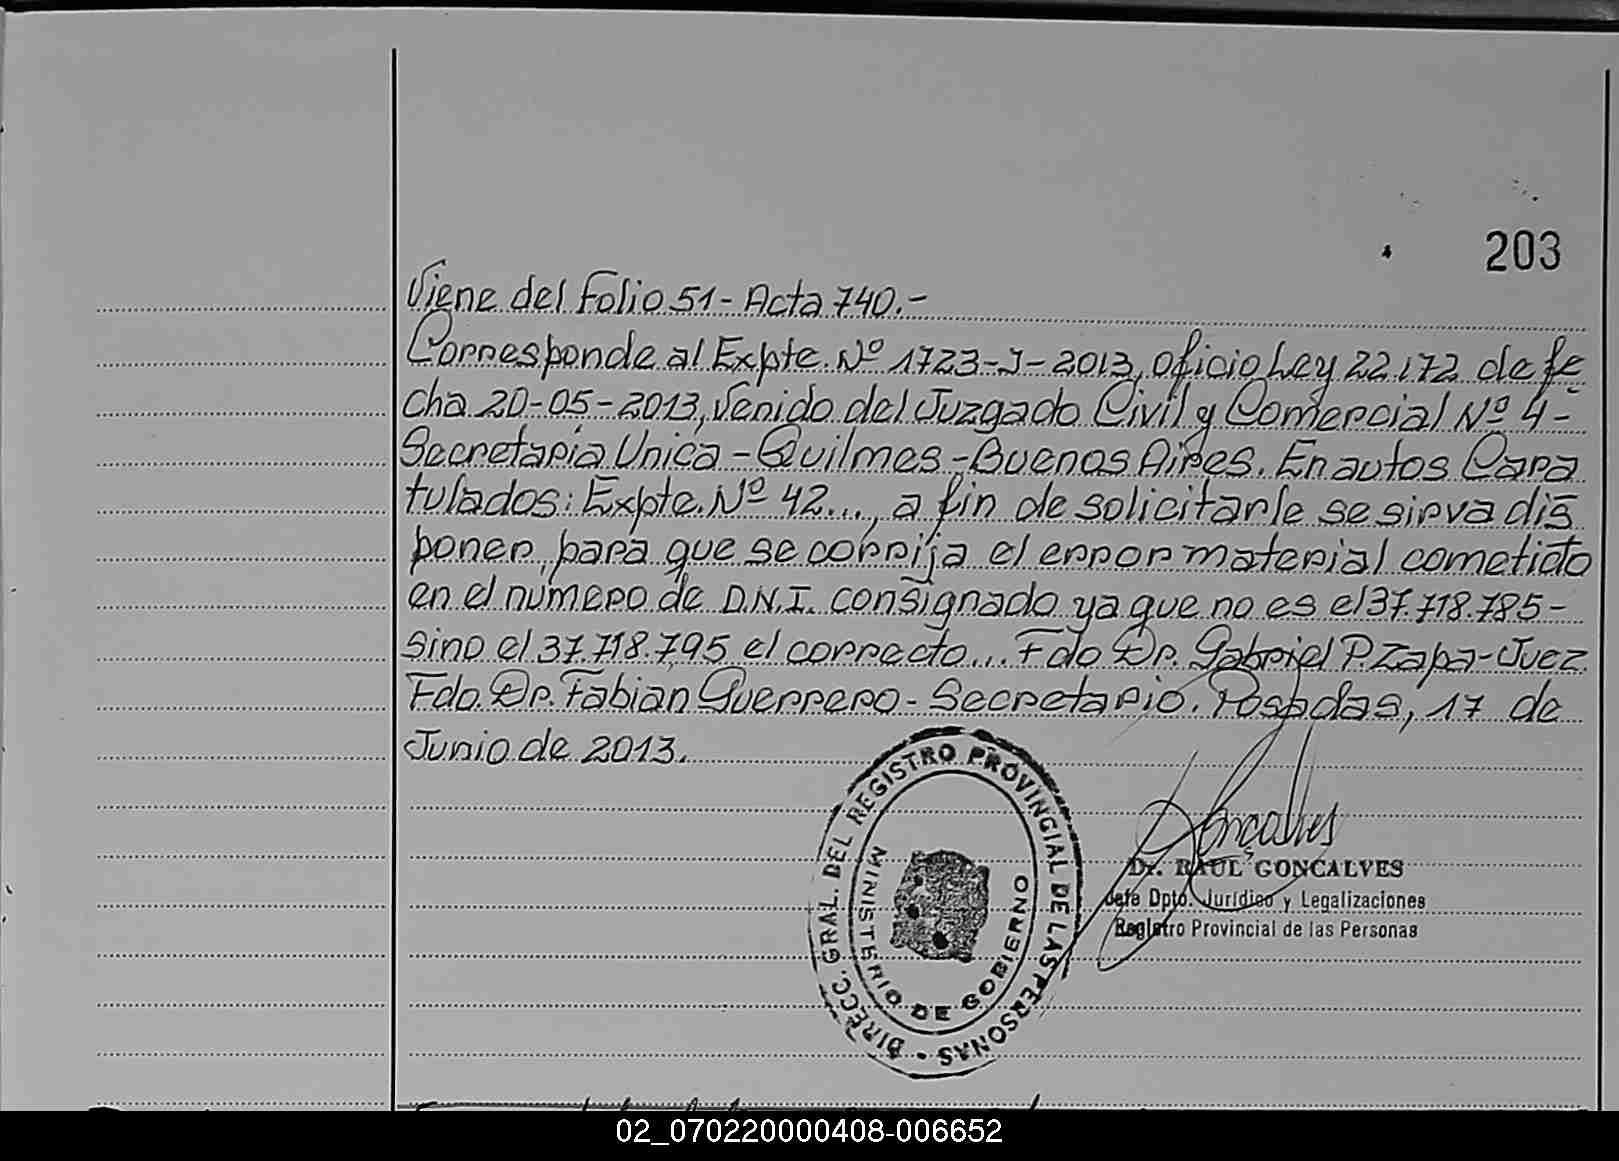 203
Viene del Folio 51 - Acta 740.-
Corresponde al Expte. Nº 1723-J-2013, oficio Ley 22.172 de fe
cha 20-05-2013, Venido del Juzgado Civil y Comercial Nº 4-
Secretaria Unica - Quilmes - Buenos Aires. En autos Cara
tulados: Expte. Nº 42..., a fin de solicitarle se sirva dis
poner, para que se corrija el error material cometido
en el número de D.N.I. consignado ya que no es el 37.718.785-
sino el 37.718.795 el correcto... Fdo Dr. Gabriel P. Zapa - Juez.
Fdo. Dr. Fabian Guerrero - Secretario. Posadas, 17 de
Junio de 2013.
DIRECC. GRAL. DEL REGISTRO PROVINCIAL DE LAS PERSONAS
MINISTERIO DE GOBIERNO
Gonçalves
Dr. RAUL GONCALVES
Jefe Dpto. Jurídico y Legalizaciones
Registro Provincial de las Personas
02_070220000408-006652